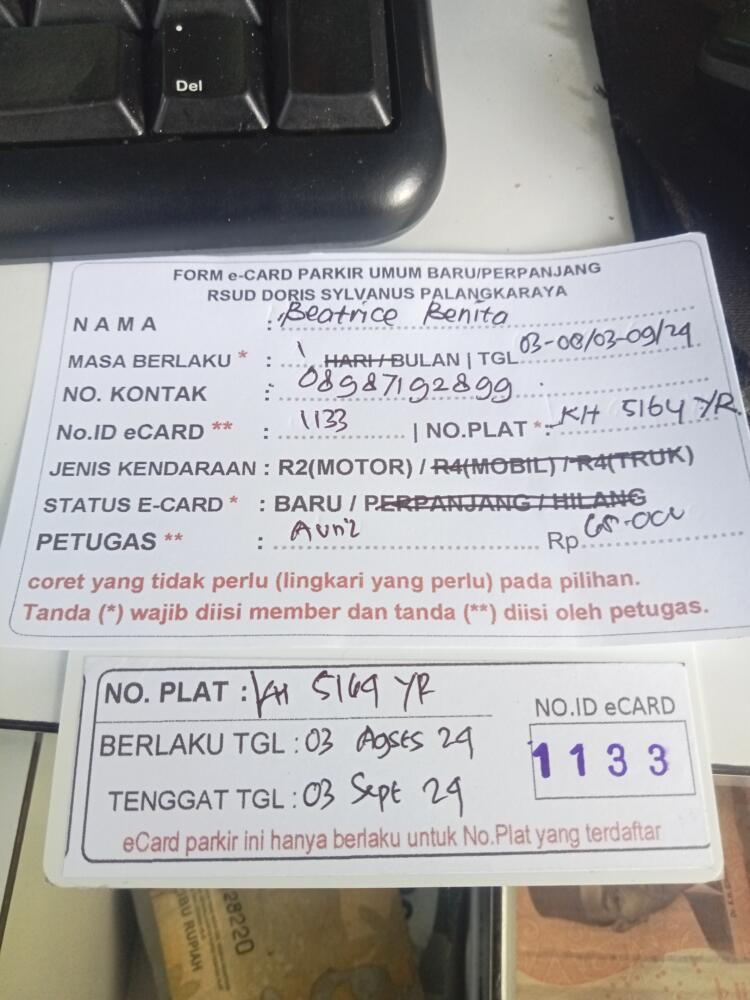 Del
FORM e-CARD PARKIR UMUM BARU/PERPANJANG
RSUD DORIS SYLVANUS PALANGKARAYA
NAMA : Beatrice Benita
MASA BERLAKU * : 1 HARI / BULAN | TGL 03-08/03-09/24
NO. KONTAK : 08987192899
No.ID eCARD ** : 1133 | NO.PLAT *: KH 5164 YR
JENIS KENDARAAN : R2(MOTOR) / R4(MOBIL) / R4(TRUK)
STATUS E-CARD * : BARU / PERPANJANG / HILANG
PETUGAS ** : Rp
coret yang tidak perlu (lingkari yang perlu) pada pilihan.
Tanda (*) wajib diisi member dan tanda (**) diisi oleh petugas.
NO. PLAT : KH 5164 YR
NO.ID eCARD
BERLAKU TGL : 03 Agsts 24
1133
TENGGAT TGL : 03 Sept 24
eCard parkir ini hanya berlaku untuk No.Plat yang terdaftar
28220
RUPIAH